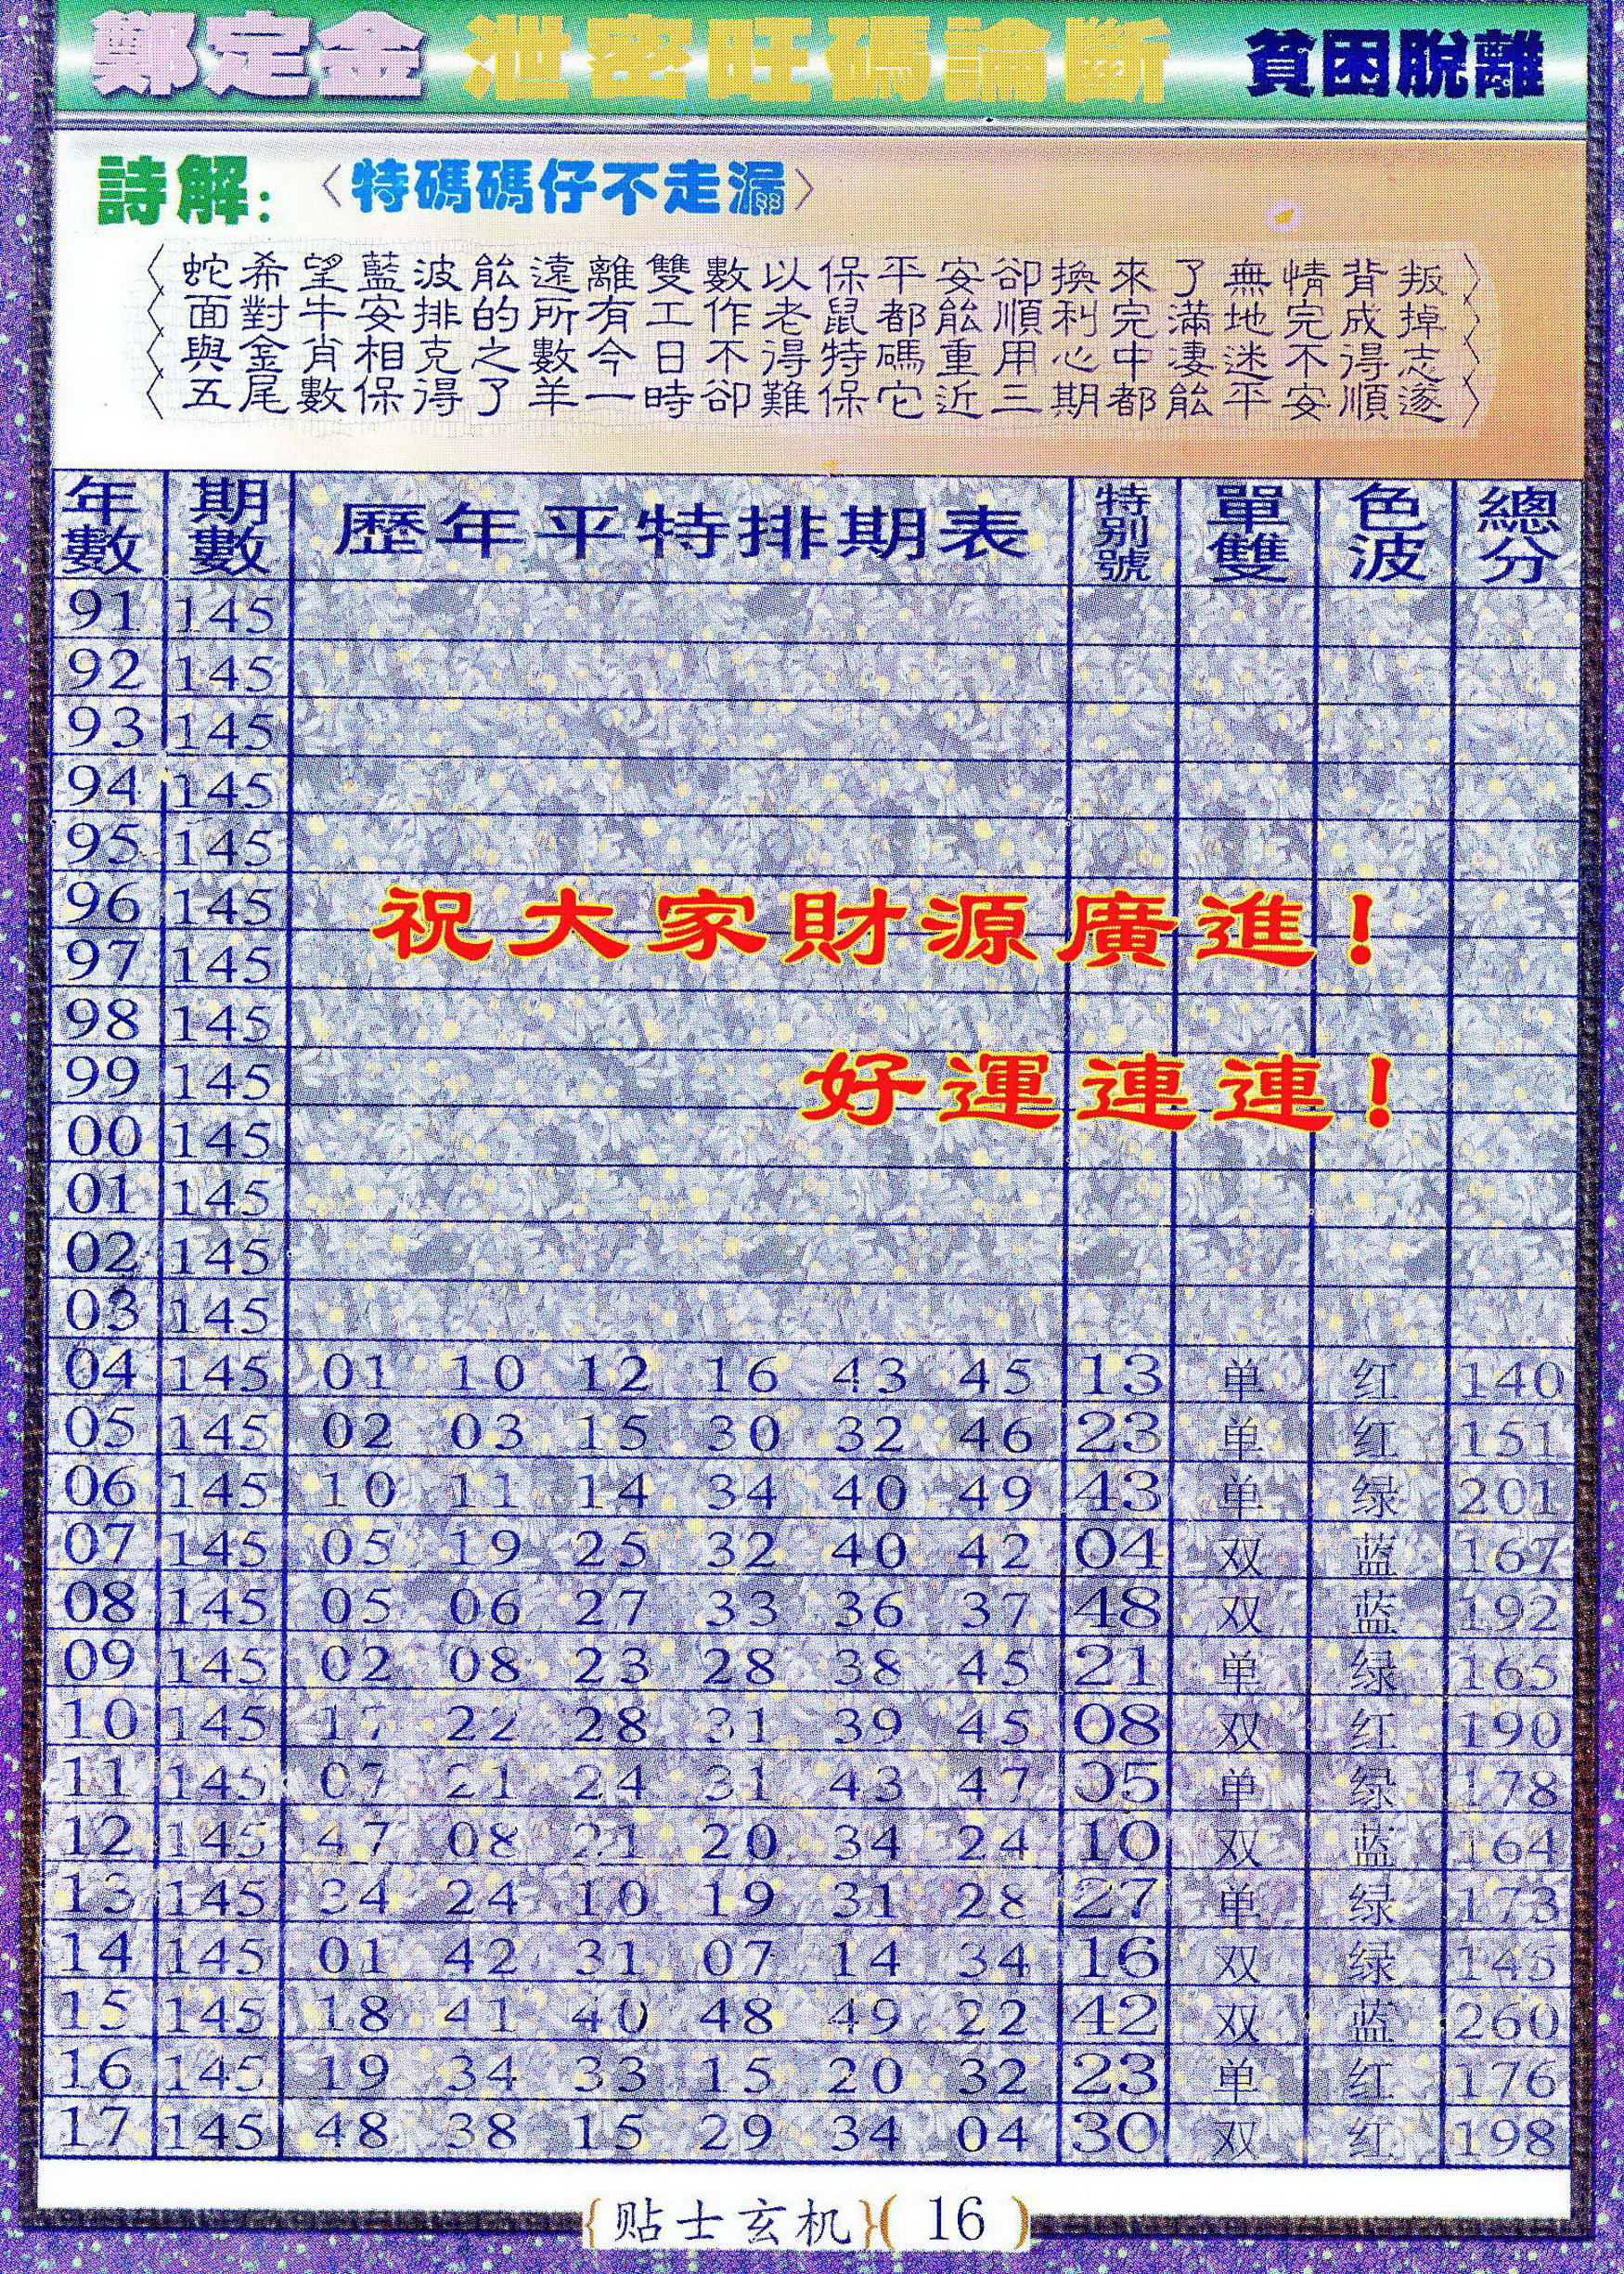 鄭定金 泄密旺碼論斷 貧困脫離
詩解:〈特碼碼仔不走漏〉
〈蛇希望藍波能遠離雙數以保平安卻換來了無情背叛〉
〈面對牛安排的所有工作老鼠都能順利完滿地完成掉〉
〈與金肖相克之數今日不得特碼重用心中凄迷不得志〉
〈五尾數保得了羊一時卻難保它近三期都能平安順遂〉
年數 期數 歷年平特排期表 特别號 單雙 色波 總分
91 145
92 145
93 145
94 145
95 145
96 145
97 145
祝大家財源廣進!
98 145
99 145
好運連連!
00 145
01 145
02 145
03 145
04 145 01 10 12 16 43 45 13 单 红 140
05 145 02 03 15 30 32 46 23 单 红 151
06 145 10 11 14 34 40 49 43 单 绿 201
07 145 05 19 25 32 40 42 04 双 蓝 167
08 145 05 06 27 33 36 37 48 双 蓝 192
09 145 02 08 23 28 38 45 21 单 绿 165
10 145 17 22 28 31 39 45 08 双 红 190
11 145 07 21 24 31 43 47 05 单 绿 178
12 145 47 08 21 20 34 24 10 双 蓝 164
13 145 34 24 10 19 31 28 27 单 绿 173
14 145 01 42 31 07 14 34 16 双 绿 145
15 145 18 41 40 48 49 22 42 双 蓝 260
16 145 19 34 33 15 20 32 23 单 红 176
17 145 48 38 15 29 34 04 30 双 红 198
{贴士玄机}(16)